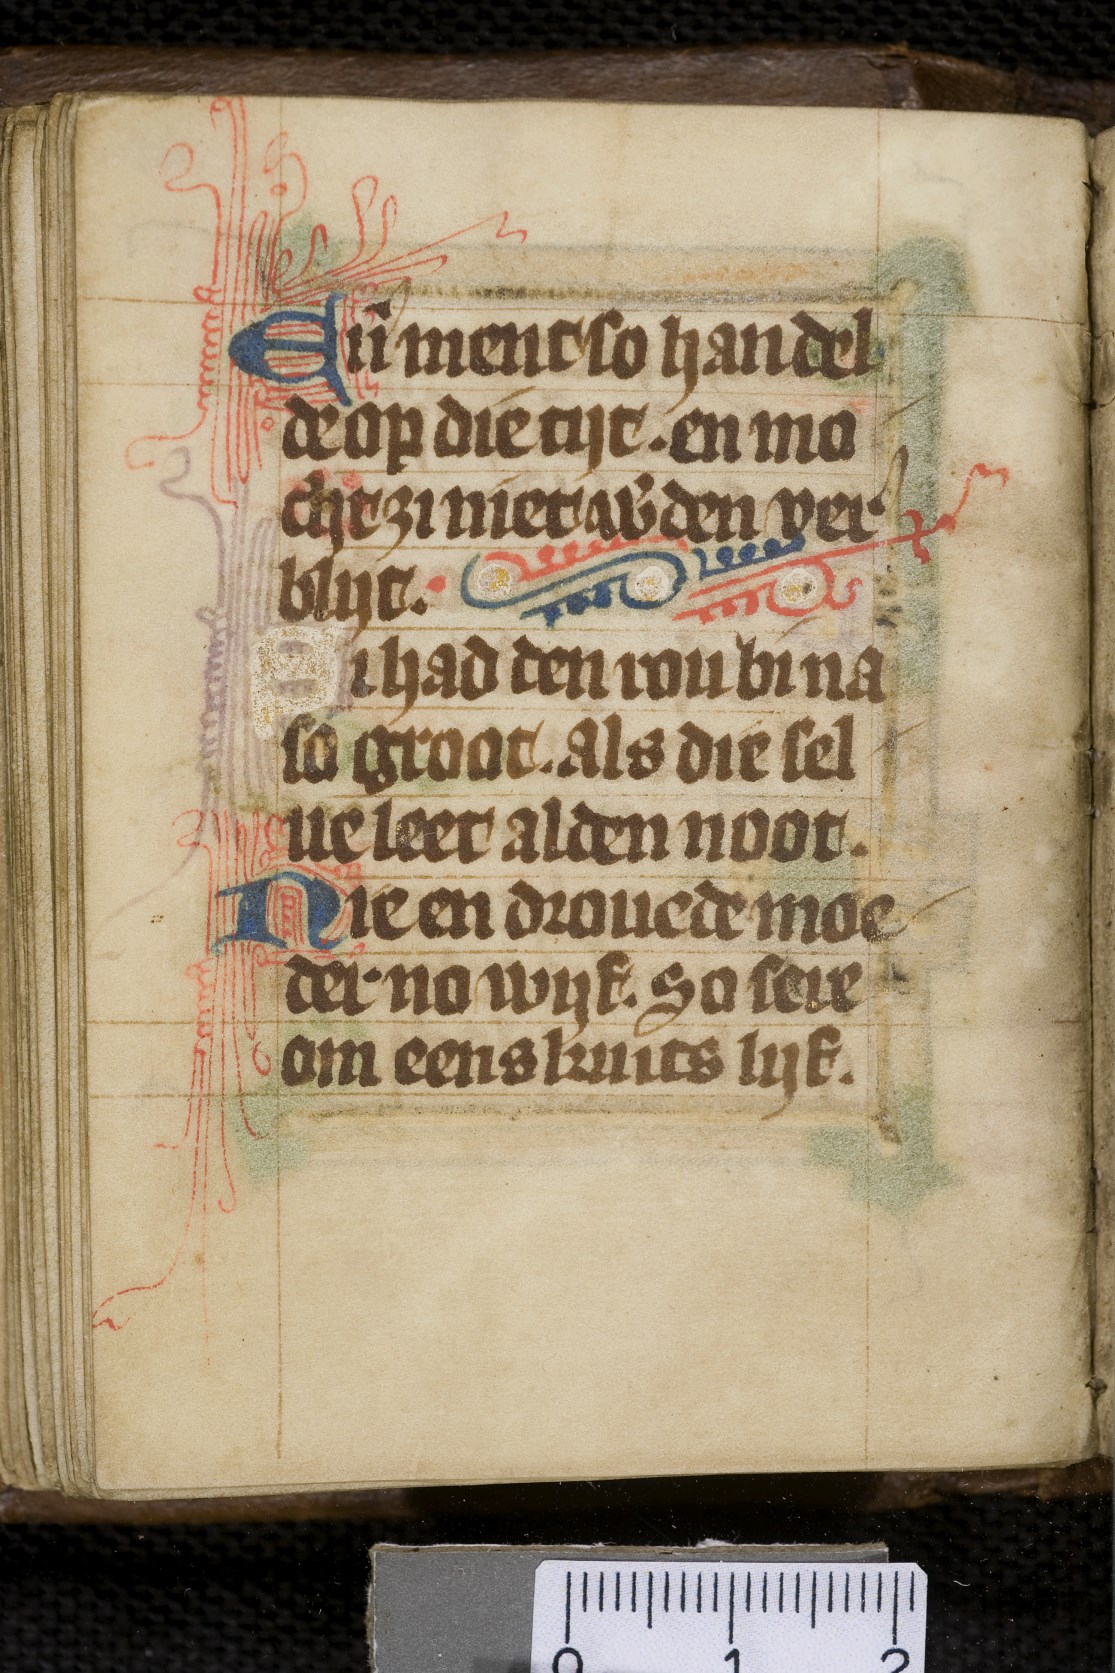 Eñ ment so handel
de op die tijt. en mo
cht zi niet w͛den ver
blijt.
i had den rou bi na
so groot. Als die sel
ue leet alden noot.
Nie en drouede moe
der no wijf. So sere
om eens kints lijf.
0 1 2